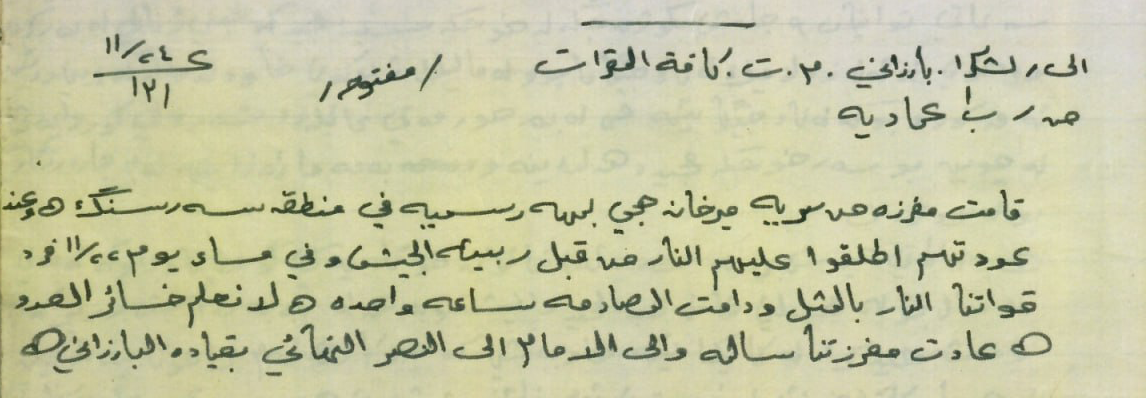 الى ر لشكر ا. بارزاني . م.ت. كافة القوات / مفتوح / ع ١١/٢٤
١٢١
من ر ب١ عماديه
قامت مفرزه من سريه ميرخان حجي بمهمه رسميه في منطقه سه رسنگ ه وعند
عودتهم اطلقوا عليهم النار من قبل ربيئه الجيش وفي مساء يوم ١١/٢٢ فرد
قواتنا النار بالمثل ودامت المصادمه ساعه واحده ه لا نعلم خسائر العدو
ه عادت مفرزتنا سالمه والى الامام الى النصر النهائي بقياده البارزاني ه